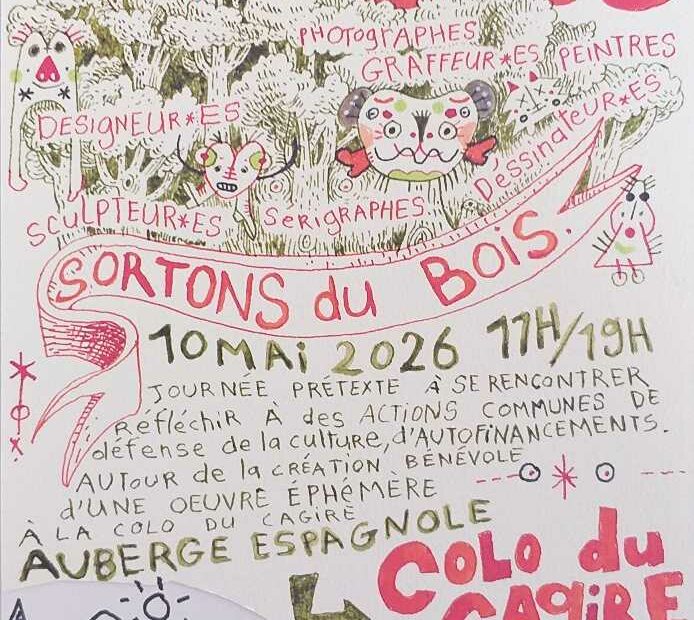 PHOTOGRAPHES
GRAFFEUR*ES PEINTRES
DESIGNEUR*ES
Déssinateur*es
SCULPTEUR*ES SERIGRAPHES
SORTONS du BOIS.
10 MAI 2026 11H/19H
JOURNÉE PRÉTEXTE À SE RENCONTRER
RÉFLÉCHIR À des ACTIONS COMMUNES DE
défense de la culture, d'AUTOFINANCEMENTS.
AUTOUR de la CRÉATION BÉNÉVOLE
d'UNE OEUVRE ÉPHÉMÈRE
À LA COLO DU CAGIRE
AUBERGE ESPAGNOLE
COLO du
CAGIRE